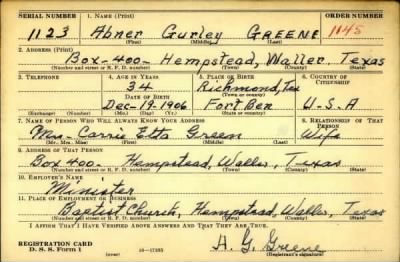 SERIAL NUMBER 1. NAME (Print) ORDER NUMBER
1123 Abner Gurley GREENE 1145
(First) (Middle) (Last)
2. ADDRESS (Print)
Box-400- Hempstead, Waller, Texas
(Number and street or R. F. D. number) (Town) (County) (State)
3. TELEPHONE 4. AGE IN YEARS 5. PLACE OF BIRTH 6. COUNTRY OF CITIZENSHIP
34 Richmond, Tex
DATE OF BIRTH (Town or county)
Dec-19-1906 Fort Ben U-S-A
(Exchange) (Number) (Mo.) (Day) (Yr.) (State or country)
7. NAME OF PERSON WHO WILL ALWAYS KNOW YOUR ADDRESS 8. RELATIONSHIP OF THAT PERSON
Mrs- Carrie Etta Green Wife
(Mr., Mrs., Miss) (First) (Middle) (Last)
9. ADDRESS OF THAT PERSON
Box 400- Hempstead, Waller, Texas
(Number and street or R. F. D. number) (Town) (County) (State)
10. EMPLOYER'S NAME
Minister
11. PLACE OF EMPLOYMENT OR BUSINESS
Baptist Church, Hempstead, Waller, Texas
(Number and street or R. F. D. number) (Town) (County) (State)
I AFFIRM THAT I HAVE VERIFIED ABOVE ANSWERS AND THAT THEY ARE TRUE.
REGISTRATION CARD
D. S. S. Form 1 (over) 16-17105 A. G. Greene
(Registrant's signature)